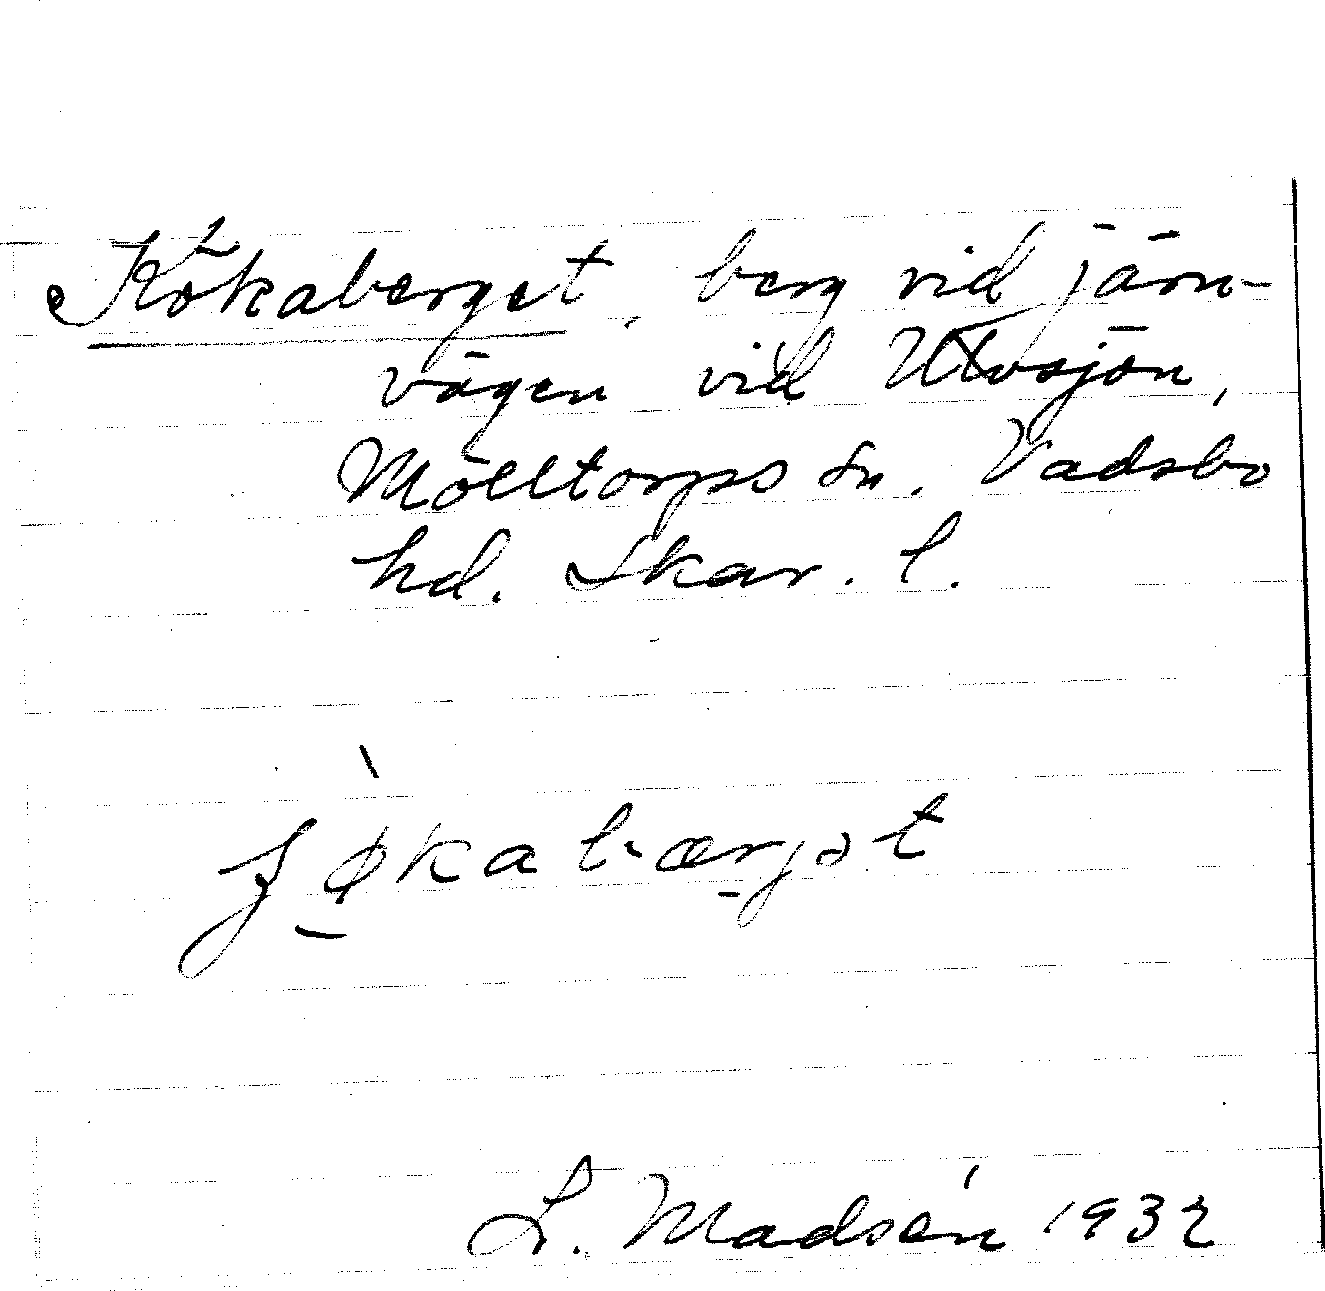 Kökaberget, berg vid järn-
vägen vid Ulvsjön,
Mölltorps sn. Vadsbo
hd. Skar. l.
L. Madsén 1932